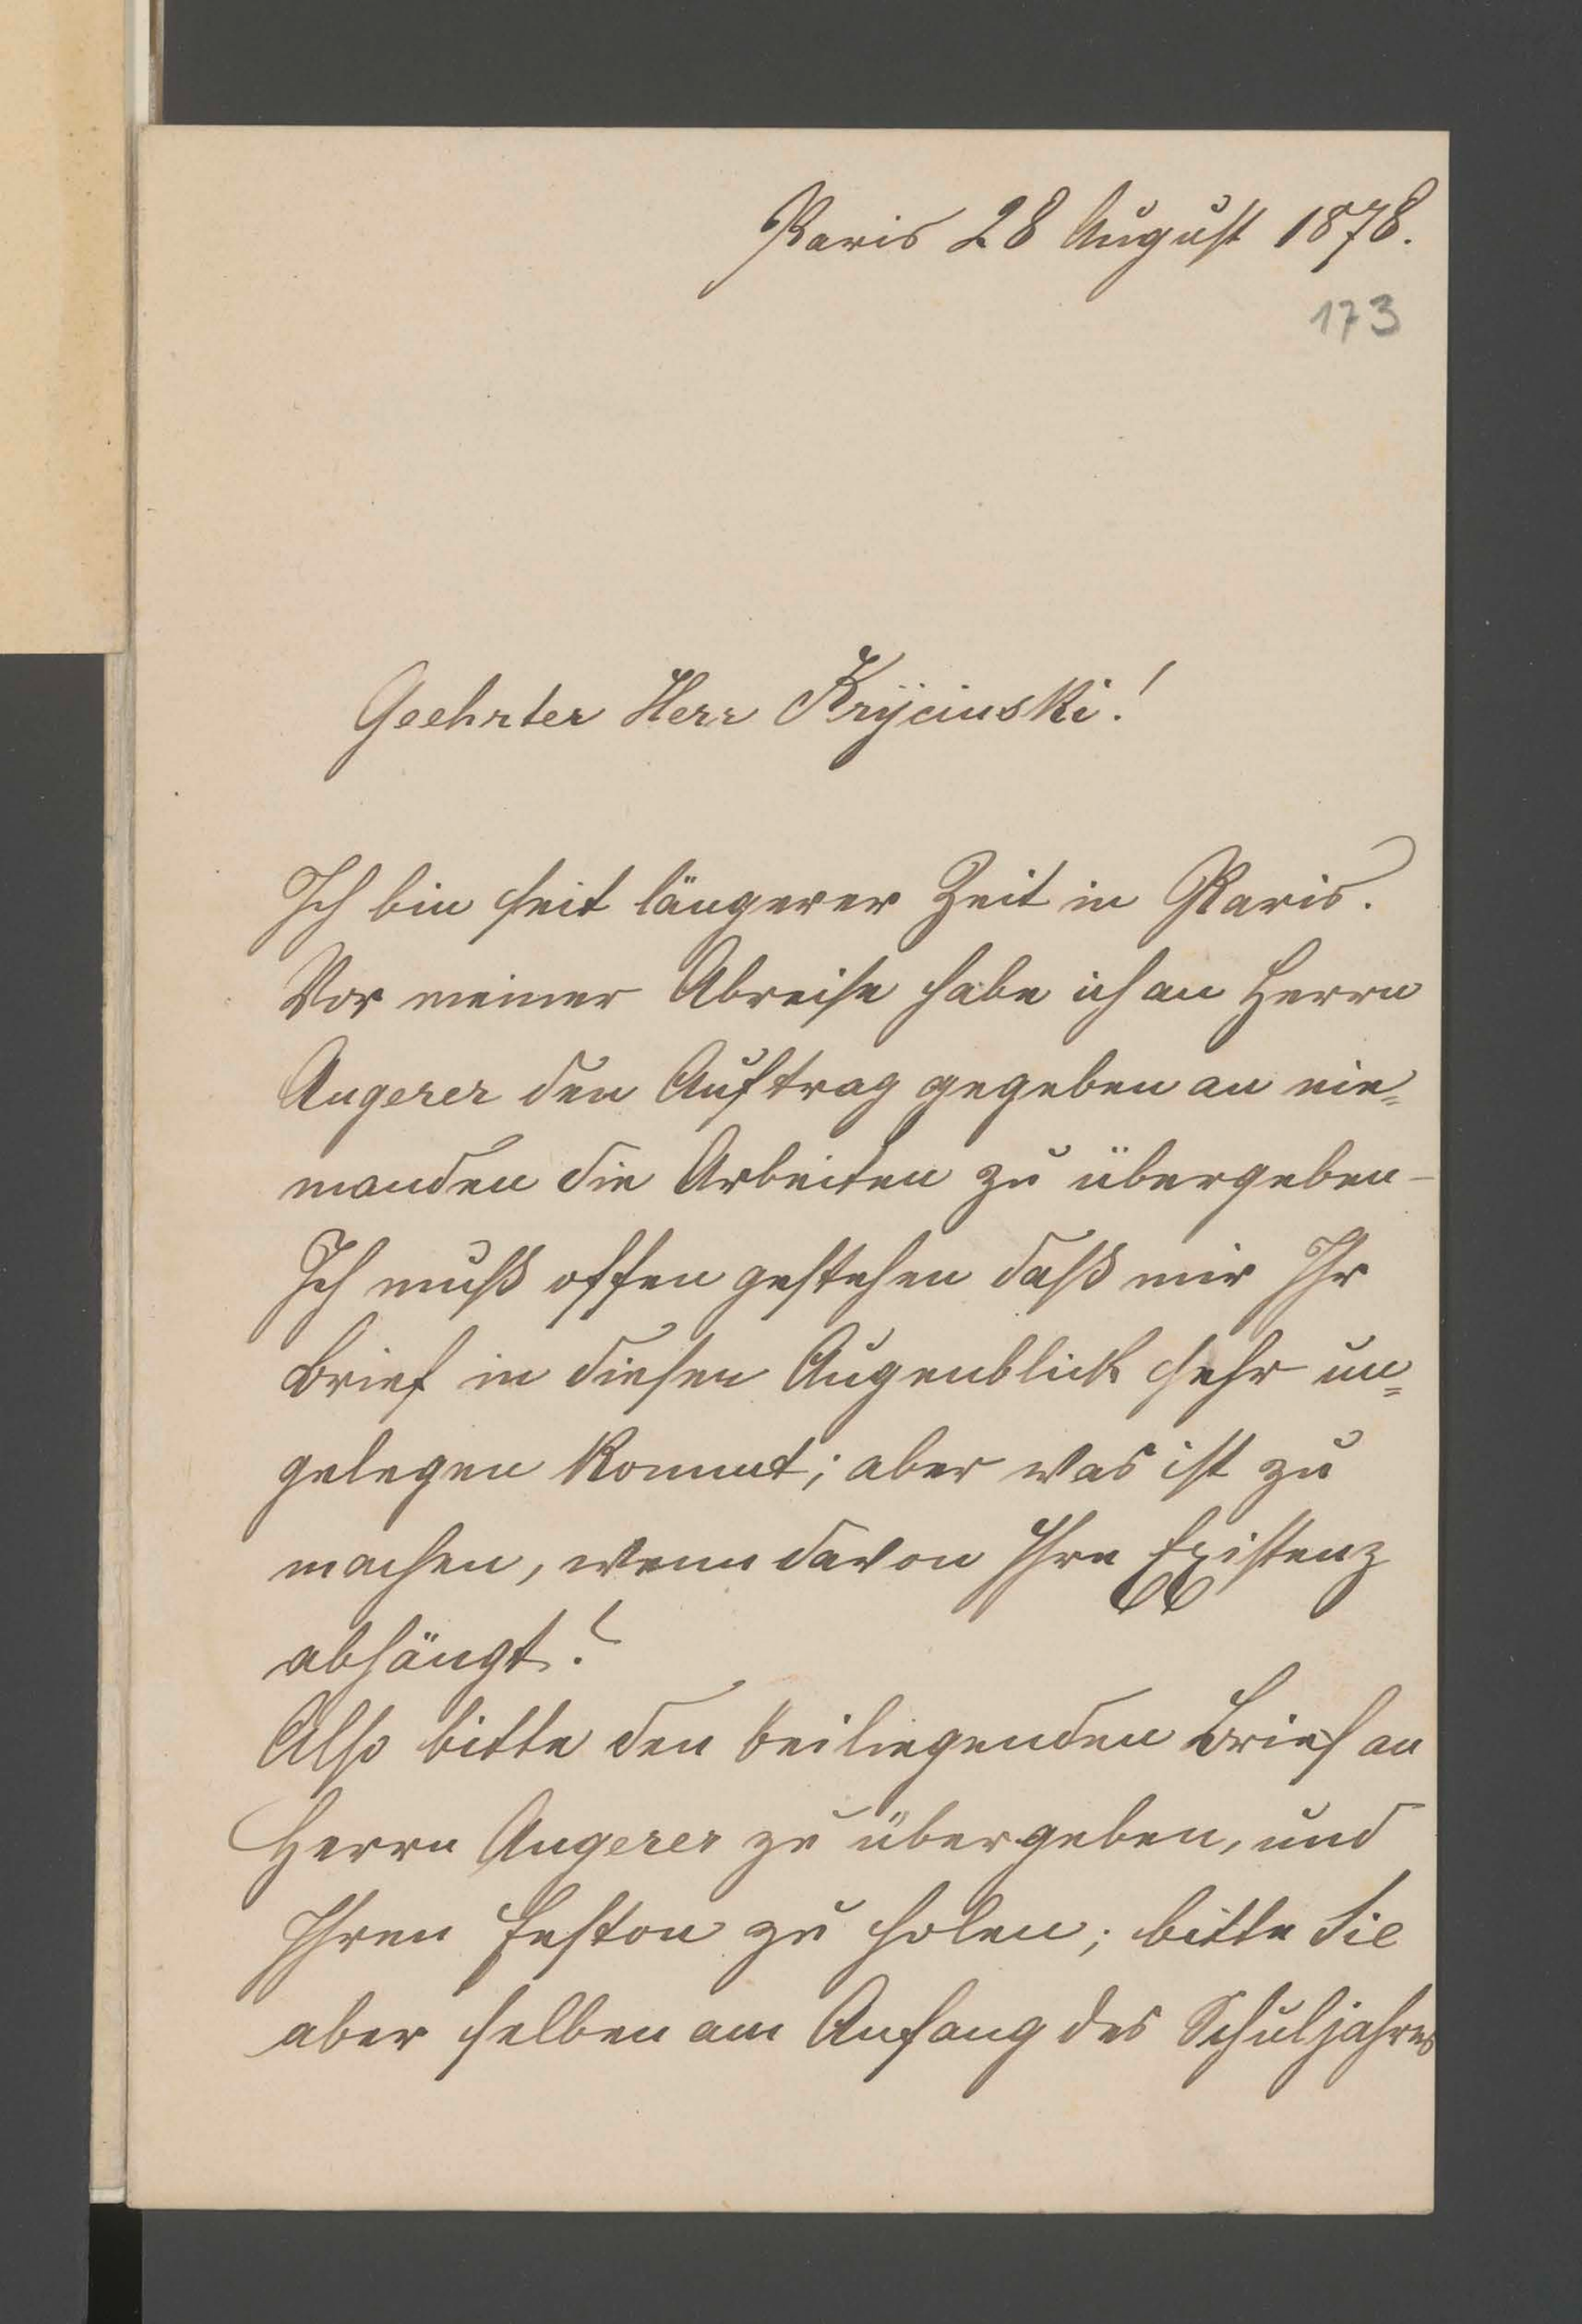 Paris 28 August 1878.
173
Geehrter Herr Kryciuski!
Ich bin seit längerer Zeit in Paris.
Vor meiner Abreise habe ich an Herrn
Angerer den Auftrag gegeben an nie=
manden die Arbeiten zu übergeben –
Ich muß offen gestehen daß mir Ihr
Brief in diesen Augenblick sehr un=
gelegen kommt; aber was ist zu
machen, wenn davon Ihre Existenz
abhängt?
Also bitte den beiliegenden Brief an
Herrn Angerer zu übergeben, und
Ihren Feston zu holen; bitte Sie
aber selben am Anfang des Schuljahres